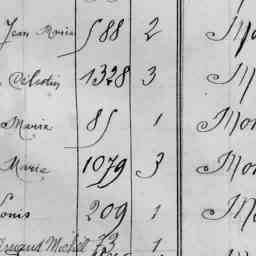 Jean Marie 588 2 Mo
Célestin 1328 3 M
Marie 85 1 Mon
Marie 1079 3 Mon
Louis 209 1 Mo
Michel 73 1